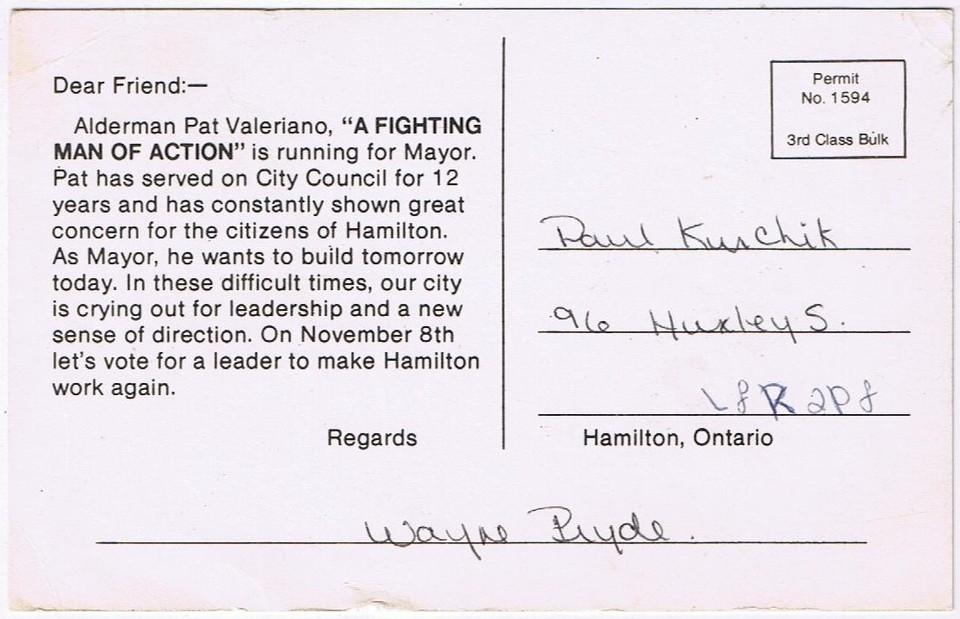 Dear Friend:—
Alderman Pat Valeriano, “A FIGHTING
MAN OF ACTION” is running for Mayor.
Pat has served on City Council for 12
years and has constantly shown great
concern for the citizens of Hamilton.
As Mayor, he wants to build tomorrow
today. In these difficult times, our city
is crying out for leadership and a new
sense of direction. On November 8th
let's vote for a leader to make Hamilton
work again.
Regards
Permit
No. 1594
3rd Class Bulk
Paul Kurchik
96 Huxley S.
L8R2P8
Hamilton, Ontario
Wayne Pryde.